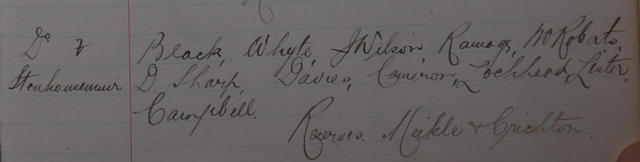 Do v Black, Whyte, J Wilson, Ramage, W Roberts,
Stenhousemuir D Sharp, Davies, Cameron, Lochhead, Lister,
Campbell.
Reserves. Meikle & Crichton.